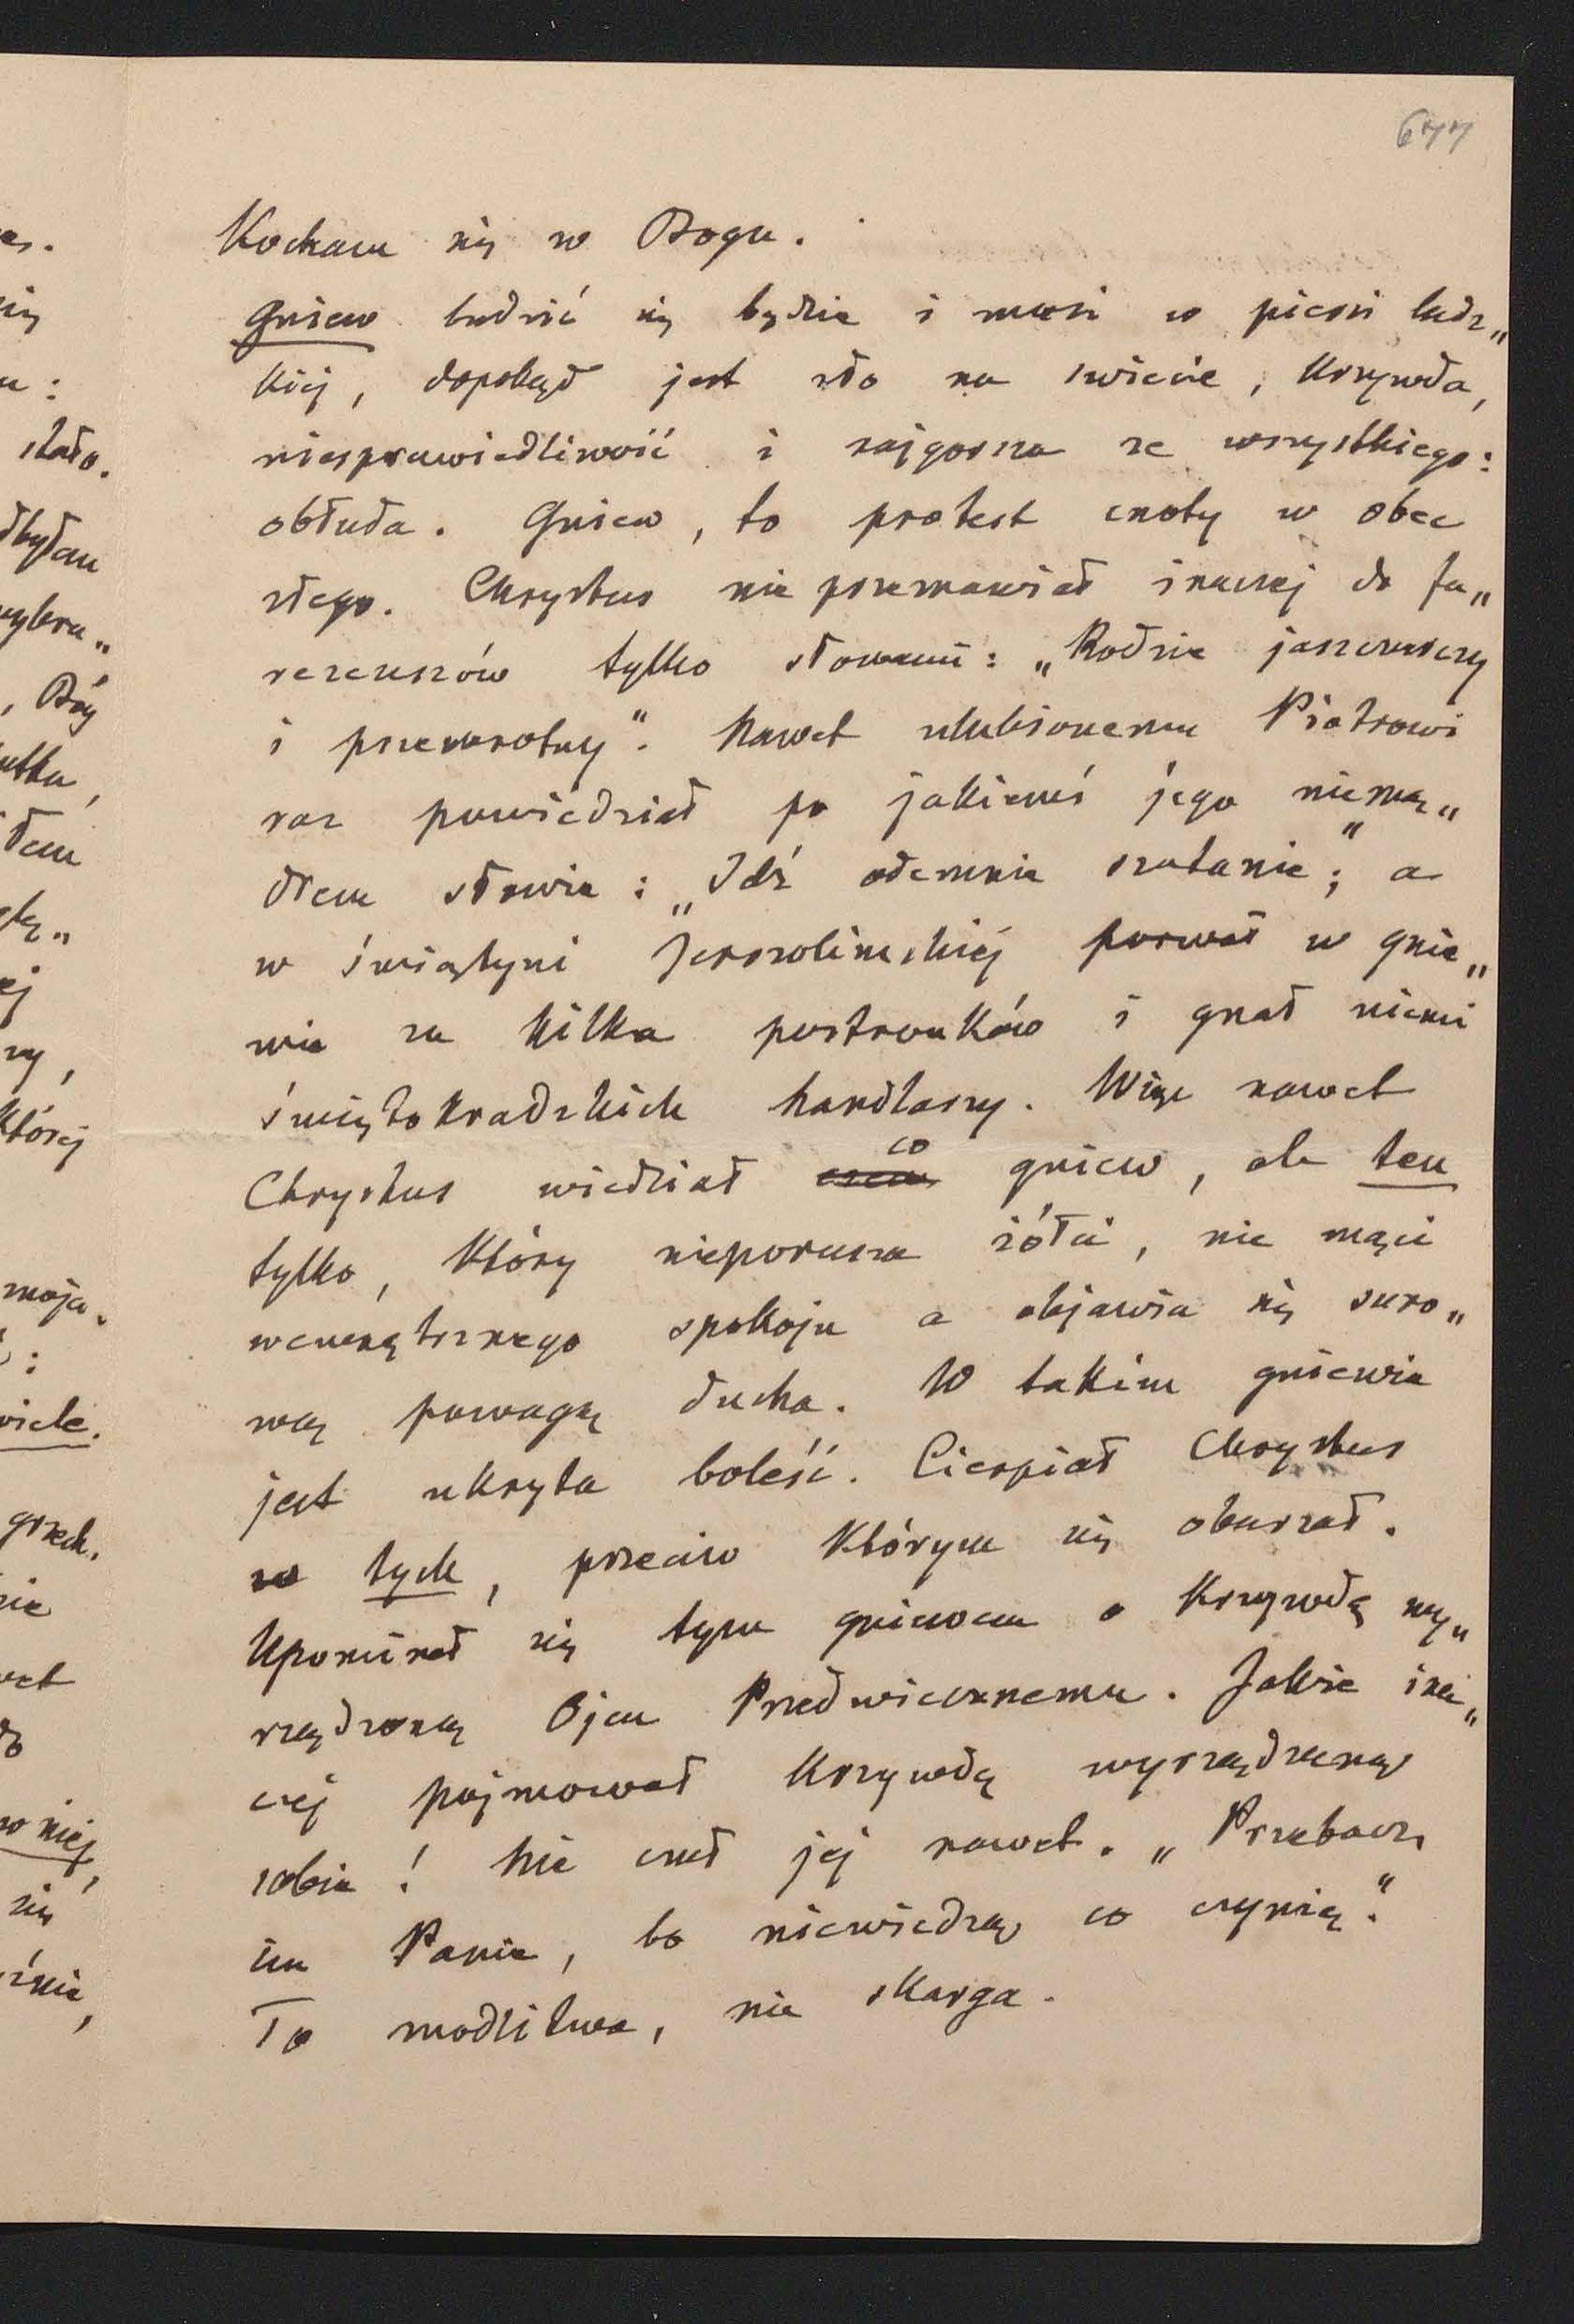 677
Kocham się w Bogu.
Gniew budzić się będzie i musi w piersi ludz„
kiej, dopokąd jest zło na świecie, krzywda,
niesprawiedliwość i najgorsza ze wszystkiego:
obłuda. Gniew, to protest cnoty w obec
złego. Chrystus nie przemawiał inaczej do fa„
rezeuszów tylko słowami: „Rodzie jaszczurczy
i przewrotny“. Nawet ulubionemu Piotrowi
raz powiedział po jakiemś jego niemą„
drem słowie: „Idź odemnie szatanie“; a
w świątyni Jerozolimskiej porwał w gnie„
wie za kilka postronków i gnał niemi
świętokradzkich handlarzy. Więc nawet
Chrystus wiedział co gniew, ale ten
tylko, który nieporusza żółci, nie mąci
wewnętrznego spokoju a objawia się suro„
wą powagą ducha. W takim gniewie
jest ukryta boleść. Cierpiał Chrystus
w tych, przeciw którym się oburzał.
Upominał się tym gniewem o krzywdę wy„
rządzoną Ojcu Przedwiecznemu. Jakże ina„
czej pojmował krzywdę wyrządzoną
sobie! Nie czuł jej nawet. „Przebacz
im Panie, bo niewiedzą co czynią“.
To modlitwa, nie skarga.
es.
się
u:
stało.
dbyłam
wybra„
, Bóg
utku,
łem
ej
ny,
której
moja.
:
wiele.
grzech.
nie
wet
do
w niej,
się
źnie,